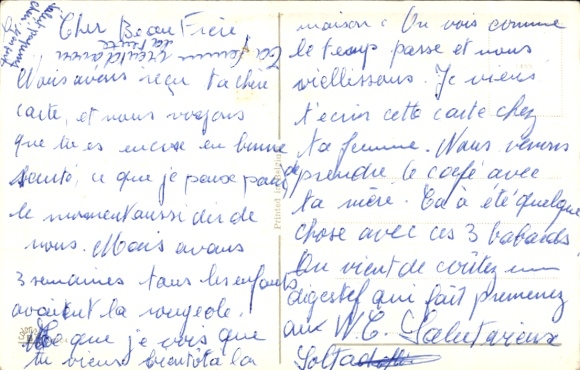 Cher Beau Frère
Nous avons reçu ta chère
carte, et nous voyons
que tu es encore en bonne
santé, ce que je peux pour
le moment aussi dir de
nous. Mais avons
3 semaines tous les enfants
avaient la rougeole.
que je vois que
tu viens bientôt à la
maison. On vois comme
le temps passe et nous
vieillissons. Je viens
t'écrir cette carte chez
ta femme. Nous venons
de prendre le café avec
ta mère. Ça à été quelque
chose avec ces 3 babards
On vient de coûtez un
digestef qui fait premenez
aux W.C. Salutarieux
Ta femme vient d'avoir
Printed in